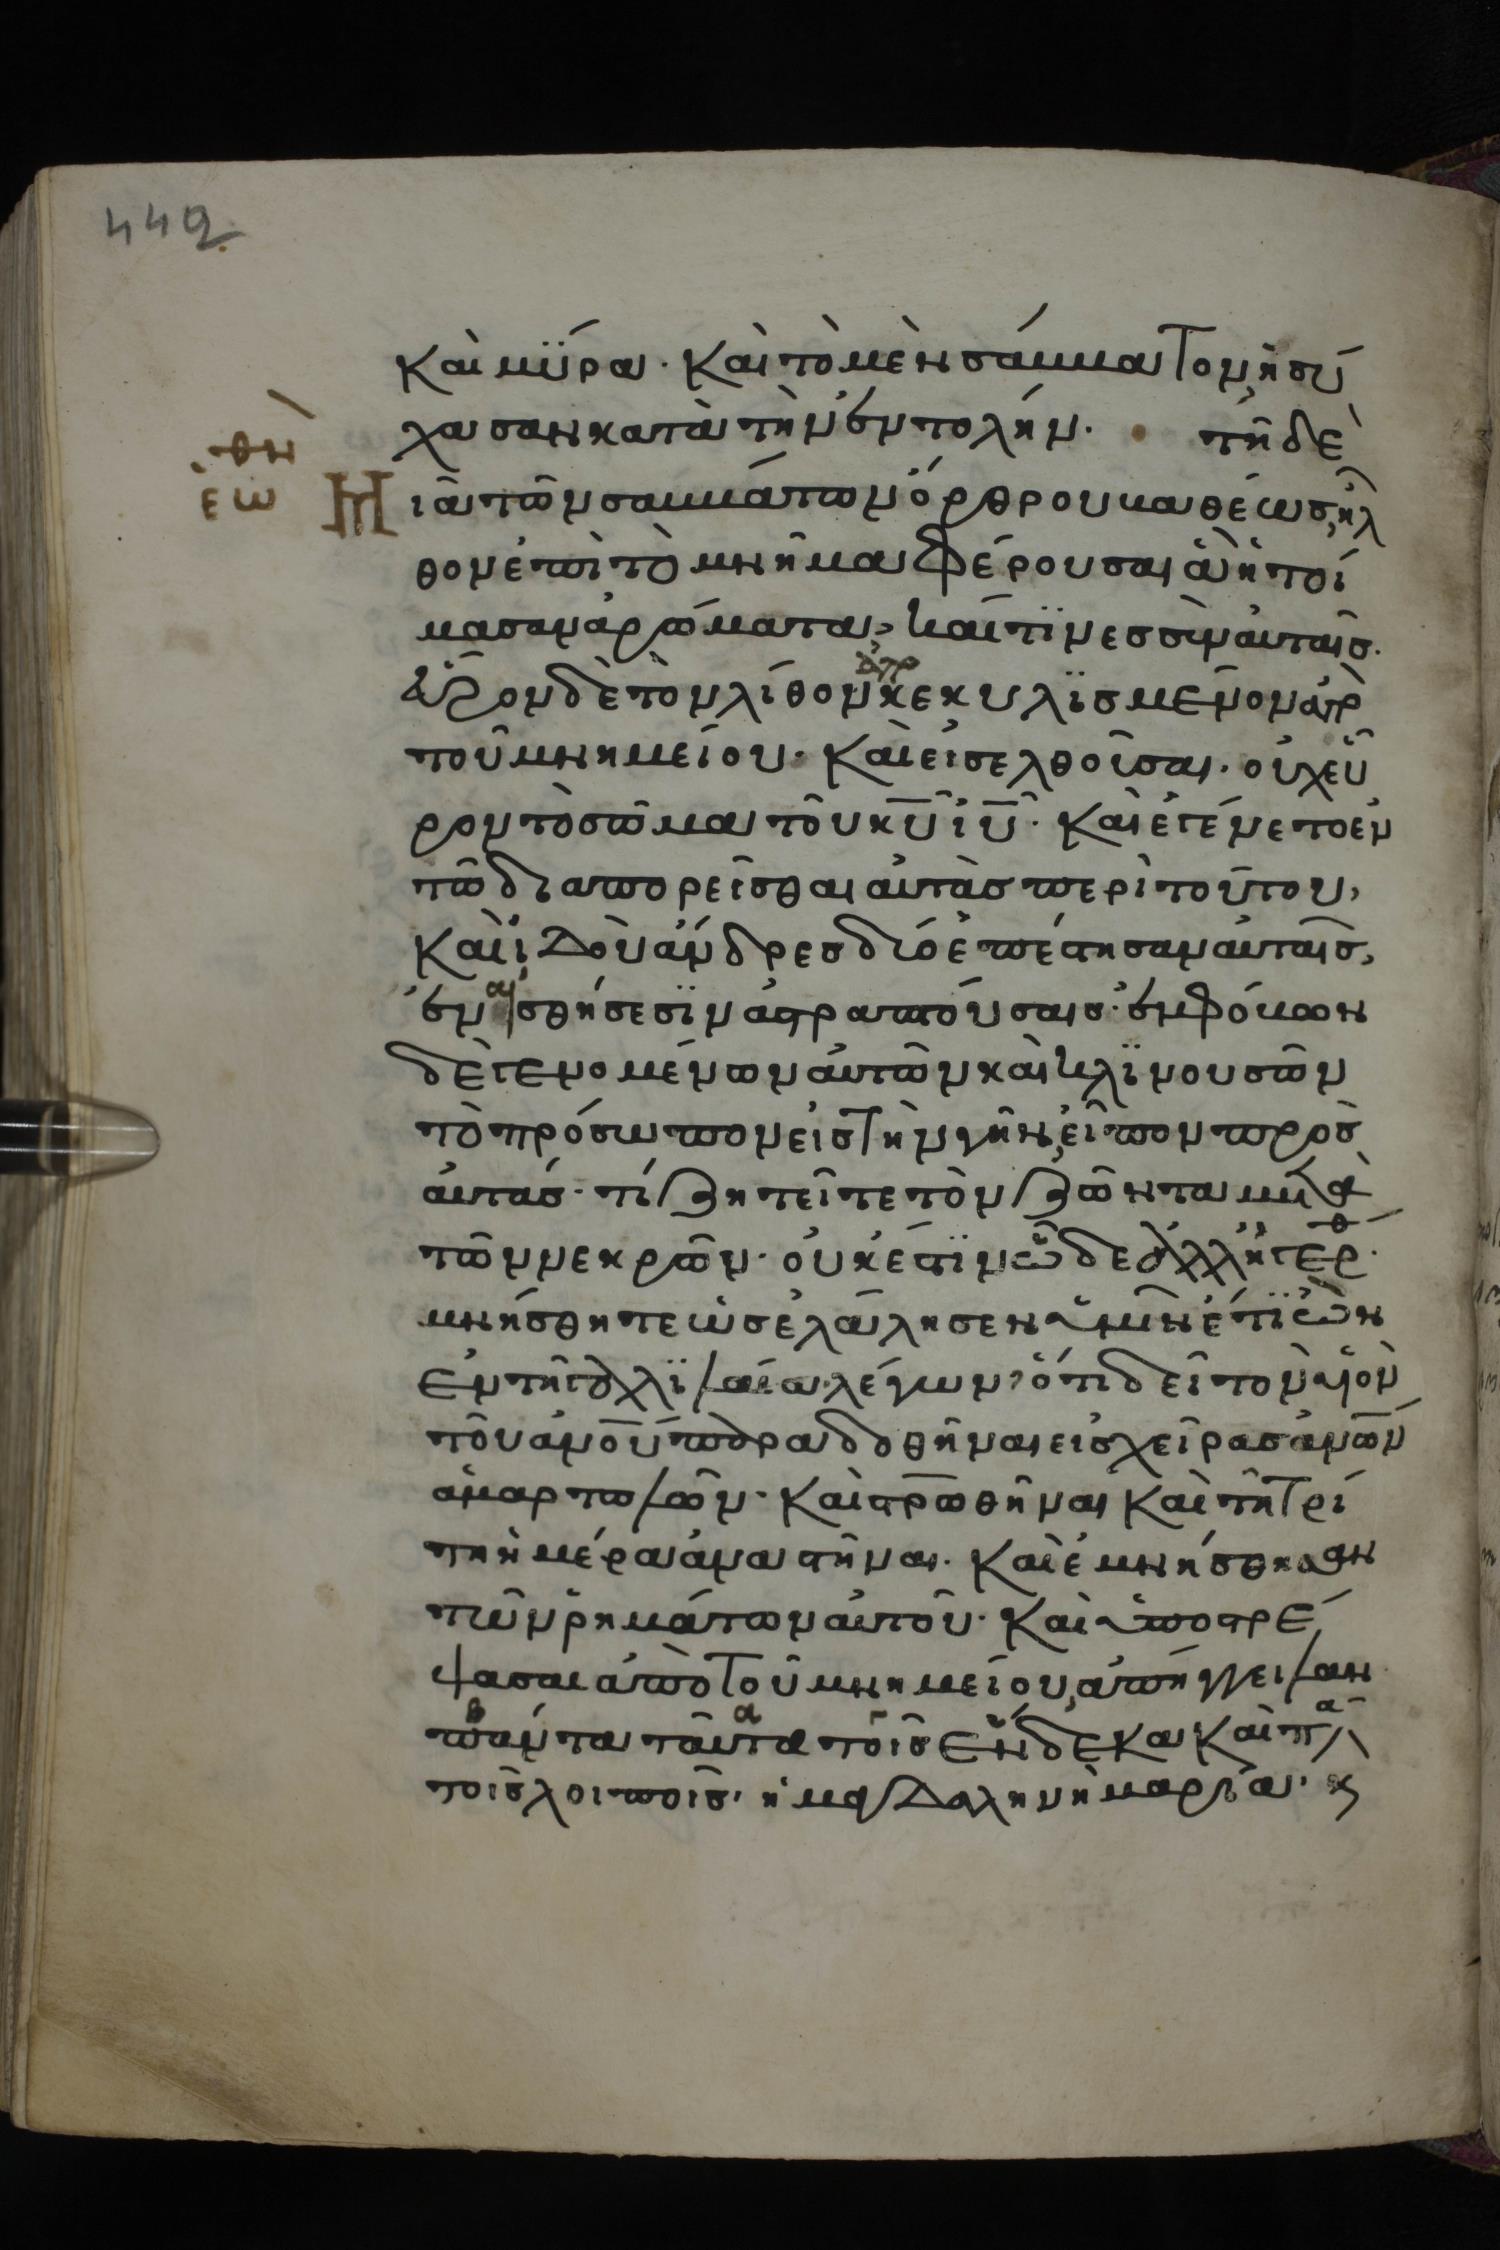 442
καὶ μύρα· καὶ τὸ μὲν σάββατον ἡσύ
χασαν κατὰ τὴν ἐντολήν· τῇ δὲ
μιᾷ τῶν σαββάτων ὄρθρου βαθέως, ἦλ
θον ἐπὶ τὸ μνῆμα φέρουσαι ἃ ἡτοί
μασαν ἀρώματα, καί τινες σὺν αὐταῖς.
εὗρον δὲ τὸν λίθον ἀπο κεκυλισμένον ἀπὸ
τοῦ μνημείου· καὶ εἰσελθοῦσαι· οὐχ εὗ
ρον τὸ σῶμα τοῦ κυ ιυ· καὶ ἐγένετο ἐν
τῶ διαπορεῖσθαι αὐτὰς περὶ τούτου,
καὶ ἰδοὺ ἄνδρες δύο ἐπέστησαν αὐταῖς,
ἐν αἰσθήσεσιν ἀστραπτούσαις· ἐμφόβων
δὲ γενομένων αὐτῶν καὶ κλινουσῶν
τὸ πρόσωπον εἰς τὴν γῆν, εἶπον πρὸς
αὐτάς· τί ζητεῖτε τὸν ζῶντα μετὰ
τῶν νεκρῶν· οὐκ ἔστιν ὧδε ἀλλ' ἠγέρθ·
μνήσθητε ὡς ἐλάλησεν ὑμῖν ἔτι ὢν
ἐν τῇ γαλιλαία· λέγων, ὅτι δεῖ τὸν υἱὸν
τοῦ ανου παραδοθῆναι εἰς χεῖρας ανων
ἁμαρτωλῶν· καὶ στρωθῆναι καὶ τῇ τρί
τη ἡμέρα ἀναστῆναι· καὶ ἐμνήσθησαν
τῶν ῥημάτων αὐτοῦ· καὶ ὑποστρέ
ψασαι ἀπὸ τοῦ μνημείου, ἀπήγγειλαν
πάντα ταῦτα τοῖς ἕνδεκα καὶ πᾶσι
τοῖς λοιποῖς· ἡ μαγδαληνὴ μαρία· κ